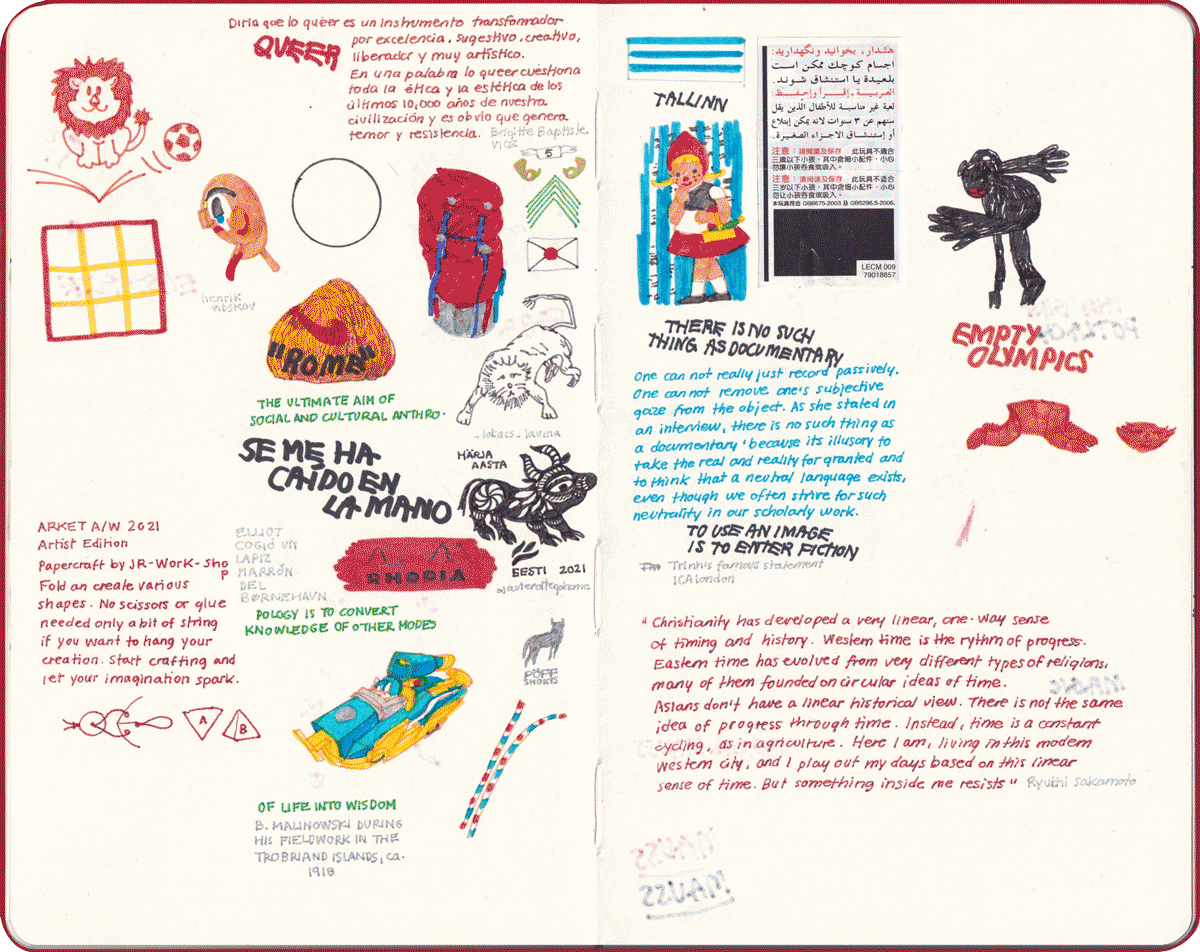 Diría que lo queer es un instrumento transformador
QUEER
por excelencia, sugestivo, creativo,
liberador y muy artístico.
En una palabra lo queer cuestiona
toda la ética y la estética de los
últimos 10,000 años de nuestra
civilización y es obvio que genera
temor y resistencia. Brigitte Baptiste.
VICE
5
henrik
vibskov
"ROMB"
THE ULTIMATE AIM OF
SOCIAL AND CULTURAL ANTHRO-
lukacs-lavina
SE ME HA
CAÍDO EN
LA MANO
HÄRJA
AASTA
EESTI 2021
@javierortegahome
ARKET A/W 2021
Artist Edition
Papercraft by JR-Work-Shop
Fold an create various
shapes. No scissors or glue
needed only a bit of string
if you want to hang your
creation. Start crafting and
let your imagination spark.
ELLIOT
COGIÓ UN
LAPIZ
MARRÓN
DEL
BØRNEHAVN
RHODIA
POLOGY IS TO CONVERT
KNOWLEDGE OF OTHER MODES
PÖFF
SHORTS
A
B
OF LIFE INTO WISDOM
B. MALINOWSKI DURING
HIS FIELDWORK IN THE
TROBRIAND ISLANDS, ca.
1918
TALLINN
هشدار، بخوانید ونگهدارید:
اجسام کوچک ممکن است
بلعیدة یا استنشاق شوند.
العربية-إقرأ واحفظ:
لعبة غير مناسبة للأطفال الذين يقل
سنهم عن ٣ سنوات لانه يمكن إبتلاع
أو إستنشاق الاجزاء الصغيرة.
注意：請閱讀及保存 此玩具不適合
三歲以下小孩，其中含細小配件，小心
勿讓小孩吞食或吸入。
注意：请阅读及保存 此玩具不适合
三岁以下小孩，其中含细小配件，小心
勿让小孩吞食或吸入。
本玩具符合 GB6675-2003 及 GB5296.5-2006.
LECM 009
79018857
THERE IS NO SUCH
THING AS DOCUMENTARY
One can not really just record passively.
One can not remove one's subjective
gaze from the object. As she stated in
an interview, there is no such thing as
a documentary 'because its illusory to
take the real and reality for granted and
to think that a neutral language exists,
even though we often strive for such
neutrality in our scholarly work.
TO USE AN IMAGE
IS TO ENTER FICTION
Trinh's famous statement
ICA london
EMPTY
OLYMPICS
"Christianity has developed a very linear, one-way sense
of timing and history. Western time is the rythm of progress.
Eastern time has evolved from very different types of religions,
many of them founded on circular ideas of time.
Asians don't have a linear historical view. There is not the same
idea of progress through time. Instead, time is a constant
cycling, as in agriculture. Here I am, living in this modern
western city, and I play out my days based on this linear
sense of time. But something inside me resists" Ryuichi Sakamoto
MAUSS
MAUSS